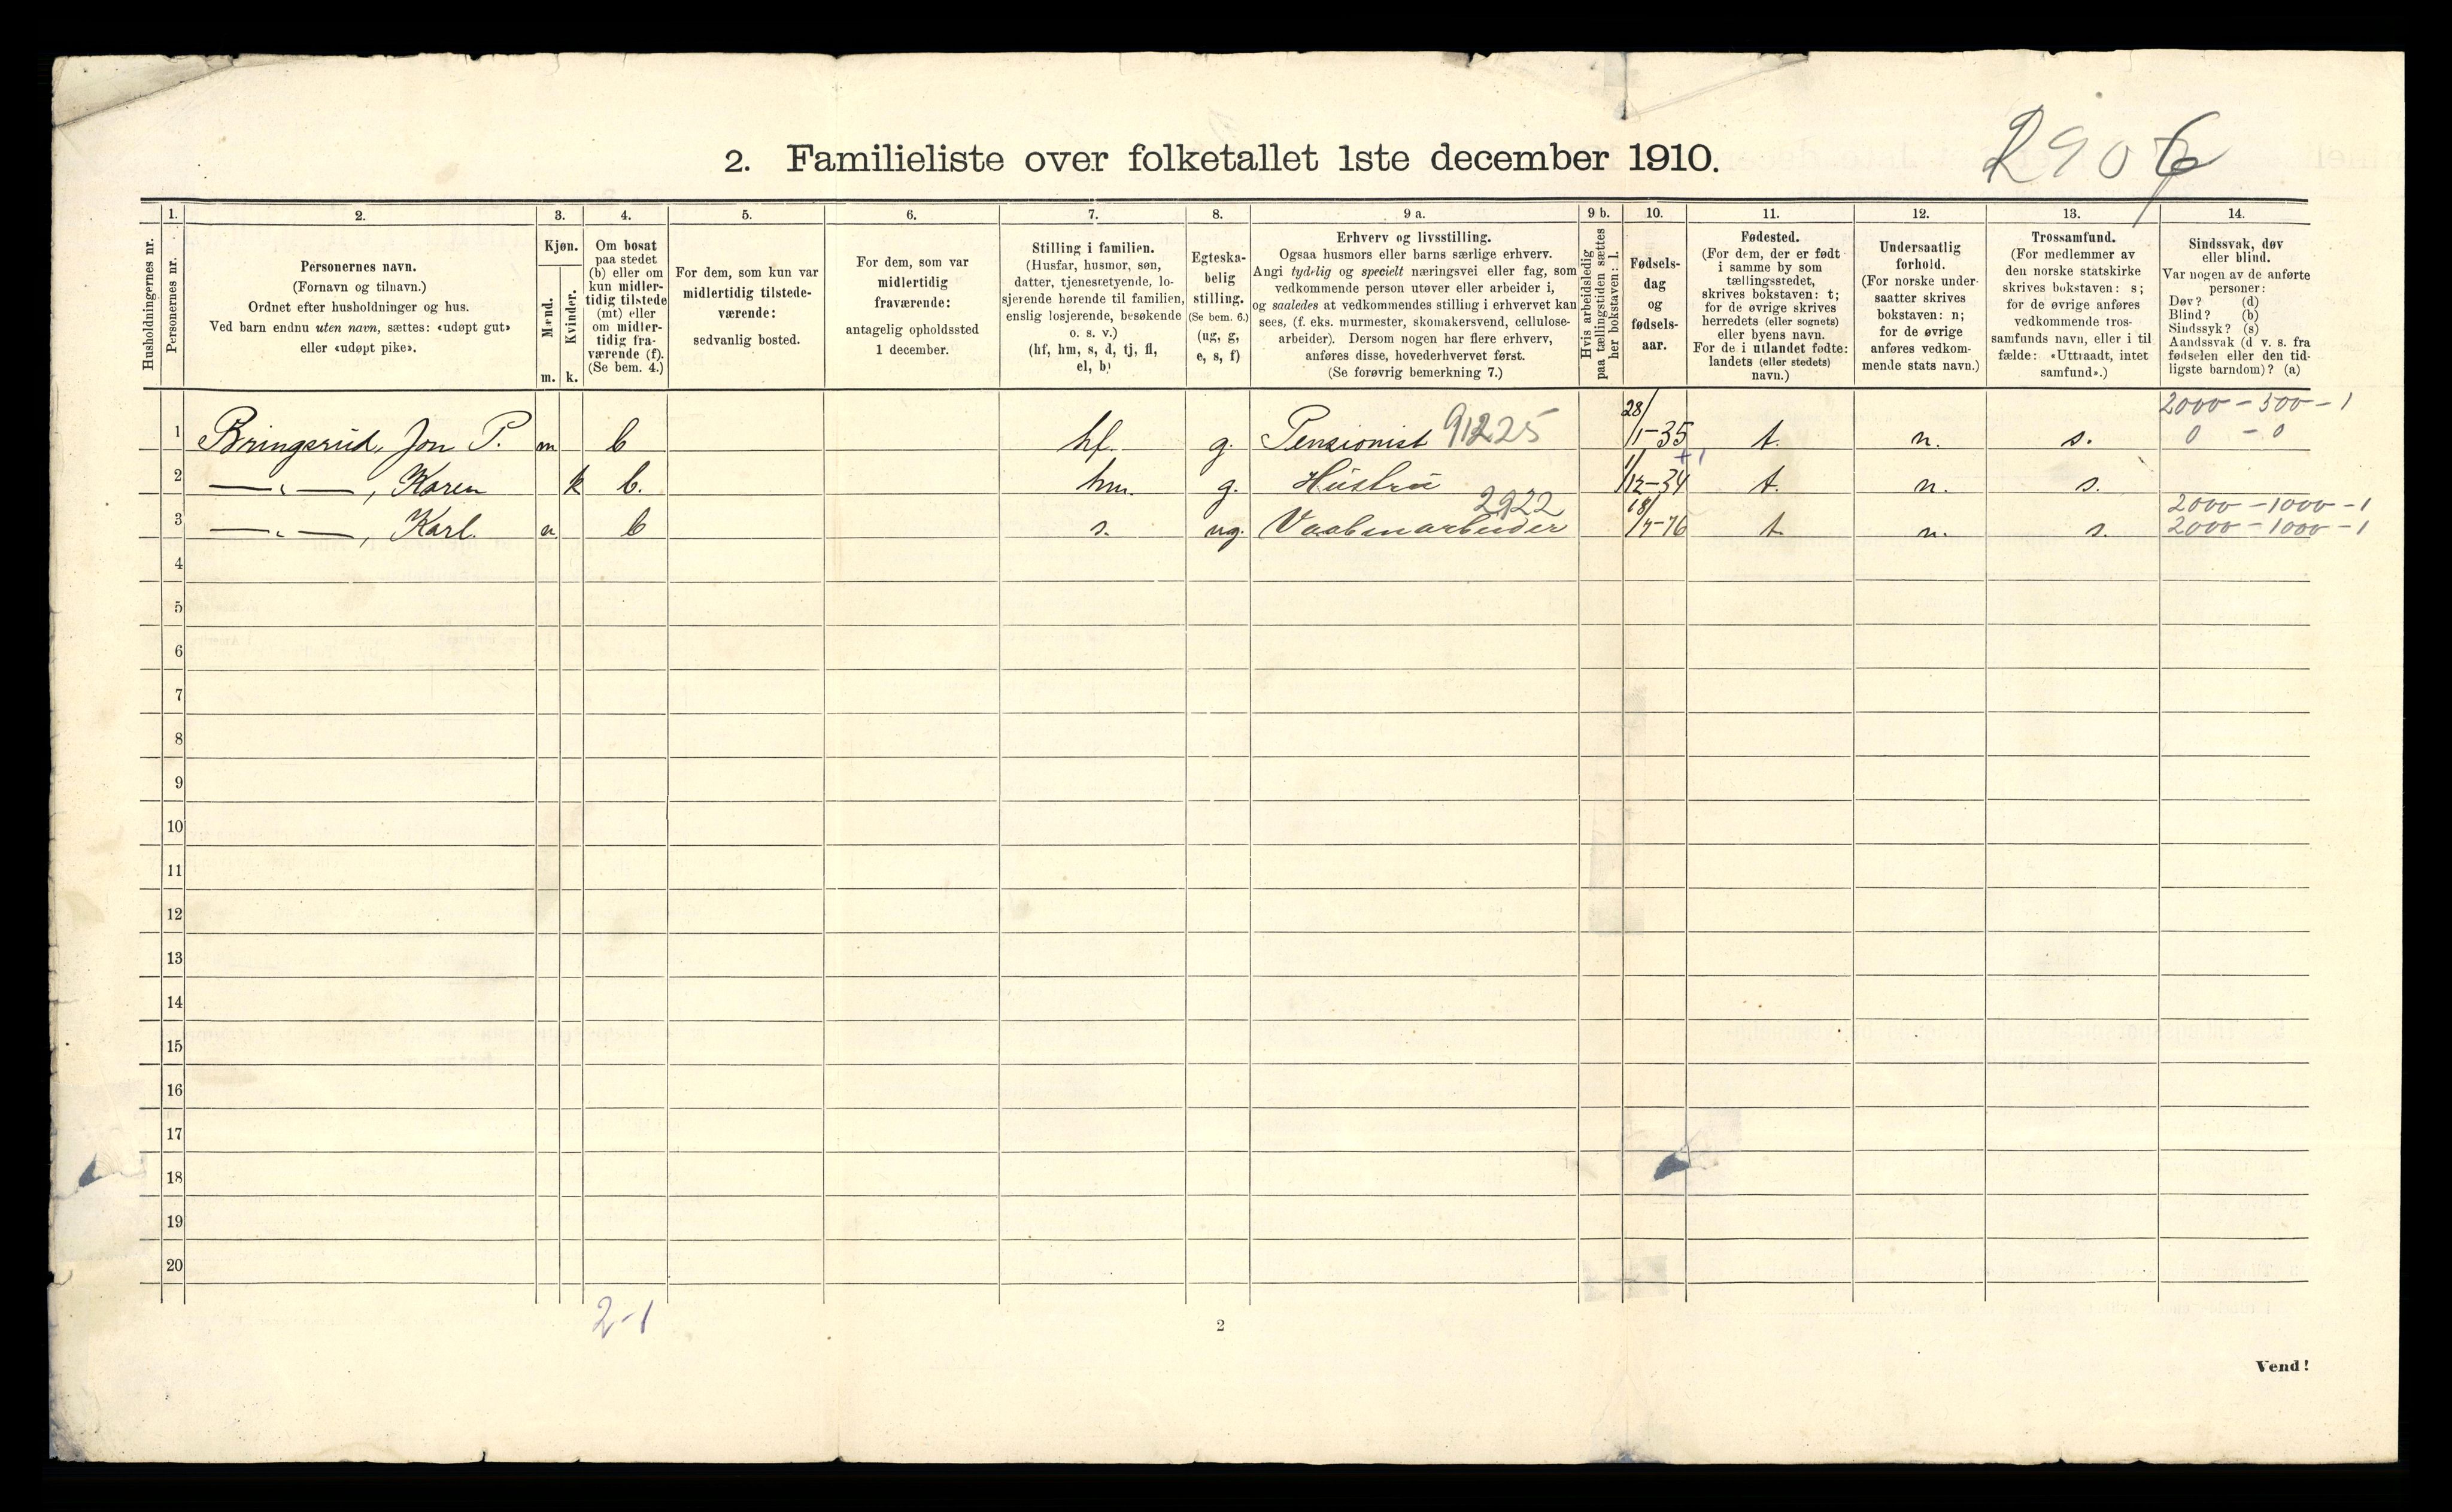 2. Familieliste over folketallet 1ste december 1910.
2906
Husholdningernes nr.
1.
Personernes nr.
2.
Personernes navn.
(Fornavn og tilnavn.)
Ordnet efter husholdninger og hus.
Ved barn endnu uten navn, sættes: «udøpt gut»
eller «udøpt pike».
3.
Kjøn.
Mænd.
Kvinder.
m. k.
4.
Om bosat
paa stedet
(b) eller om
kun midler-
tidig tilstede
(mt) eller
om midler-
tidig fra-
værende (f).
(Se bem. 4.)
5.
For dem, som kun var
midlertidig tilstede-
værende:
sedvanlig bosted.
6.
For dem, som var
midlertidig
fraværende:
antagelig opholdssted
1 december.
7.
Stilling i familien.
(Husfar, husmor, søn,
datter, tjenestetyende, lo-
sjerende hørende til familien,
enslig losjerende, besøkende
o. s. v.)
(hf, hm, s, d, tj, fl,
el, b)
8.
Egteska-
belig
stilling.
(Se bem. 6.)
(ug, g,
e, s, f)
9 a.
Erhverv og livsstilling.
Ogsaa husmors eller barns særlige erhverv.
Angi tydelig og specielt næringsvei eller fag, som
vedkommende person utøver eller arbeider i,
og saaledes at vedkommendes stilling i erhvervet kan
sees, (f. eks. murmester, skomakersvend, cellulose-
arbeider). Dersom nogen har flere erhverv,
anføres disse, hovederhvervet først.
(Se forøvrig bemerkning 7.)
9 b.
Hvis arbeidsledig
paa tællingstiden sættes
her bokstaven: l.
10.
Fødsels-
dag
og
fødsels-
aar.
11.
Fødested.
(For dem, der er født
i samme by som
tællingsstedet,
skrives bokstaven: t;
for de øvrige skrives
herredets (eller sognets)
eller byens navn.
For de i utlandet fødte:
landets (eller stedets)
navn.)
12.
Undersaatlig
forhold.
(For norske under-
saatter skrives
bokstaven: n;
for de øvrige
anføres vedkom-
mende stats navn.)
13.
Trossamfund.
(For medlemmer av
den norske statskirke
skrives bokstaven: s;
for de øvrige anføres
vedkommende tros-
samfunds navn, eller i til
fælde: «Uttraadt, intet
samfund».)
14.
Sindssvak, døv
eller blind.
Var nogen av de anførte
personer:
Døv? (d)
Blind? (b)
Sindssyk? (s)
Aandssvak (d v. s. fra
fødselen eller den tid-
ligste barndom)? (a)
2000 - 500 - 1
1 Bringsrud, Jon P. m b hf. g. Pensionist 91225 28/1-35 t. n. s. 0 - 0
2 —"—, Karen k b. hm. g. Hustru 1/12-34 t. n. s.
2922 2000 - 1000 - 1
3 —"—, Karl. m b s. ug. Vaabenarbeider 18/7-76 t. n. s. 2000 - 1000 - 1
4
5
6
7
8
9
10
11
12
13
14
15
16
17
18
19
20
2-1
2
Vend!